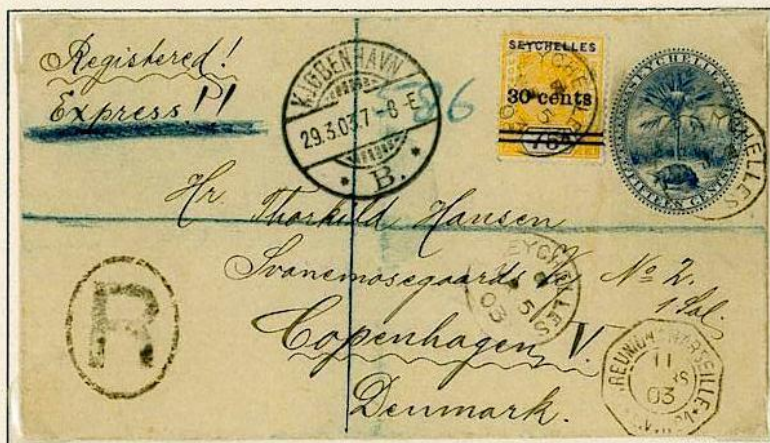 Registered!
Express!!
KJØBENHAVN
29.3.03.7-8 E
* B. *
586
SEYCHELLES
30 cents
SEYCHELLES
FIFTEEN CENTS
SEYCHELLES
Hr. Thorkild Hansen
Svanemosegaards V. No 2.
1 Sal.
Copenhagen V.
Denmark.
R
SEYCHELLES
5
03
REUNION MARSEILLE
11
03